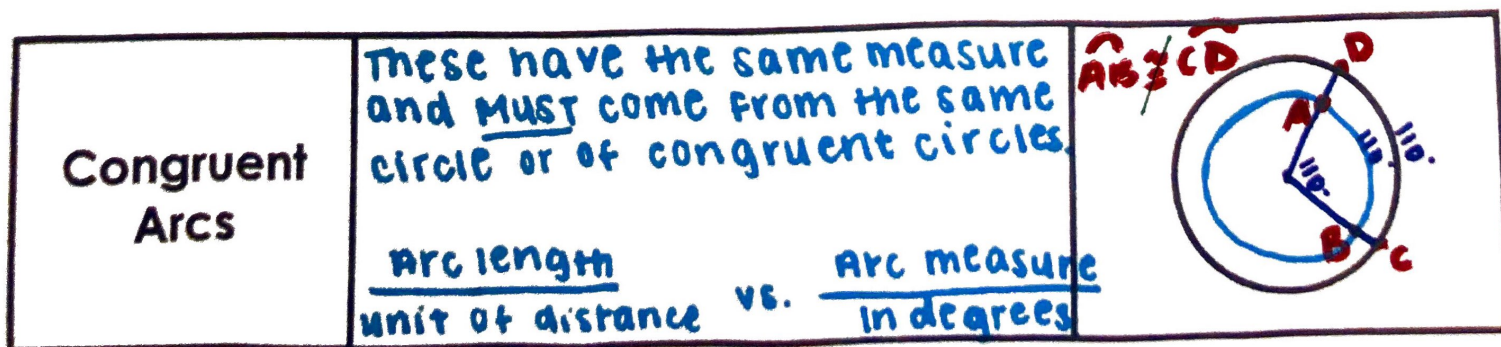 Congruent
Arcs
These have the same measure
and MUST come from the same
circle or of congruent circles.
Arc length
unit of distance
vs.
Arc measure
in degrees
AB ≇ CD
D
A
110°
110°
110°
B
C